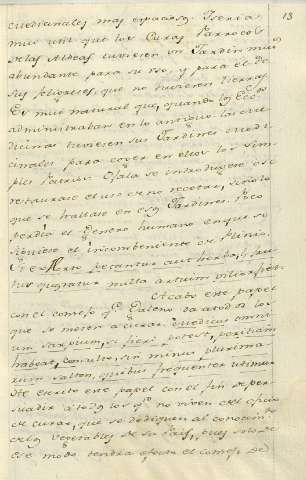 13
medicinales mas espaciosos. Y seria
mui util que los Curas Parrocos
de las Aldeas tuviesen un Jardin mui
abundante para su uso, y para el de
sus feligreses, que no tuviesen tierras.
Es mui natural que, quando los
administraban en lo antiguo las me
dicinas tuviesen sus Jardines medi
cinales para coger en ellos los sim
ples Patrios. Ojala se introdugese ò se
restaurase el uso de no recetar, sino lo
que se hallase en esos Jardines. Poco
perdia el Genero humano en que se
siguiese el inconbeniente de Plinio.
petantur aut herba,
tus quæratur multa artium
Acabo este papel
con el consejo qe Galeno da a todos los
que se meten a curar.
si fieri potest, peritiam
habeat, consulo, sin minus plurima
rum saltem, quibus frequenter utimur
He escrito este papel con el fin de per
suadir à todos los qe no viven del oficio
de curar, que se dediquen al conocim.
de los Vegetables de su Pais, pues solo de
ese modo tendra efecto el consejo de